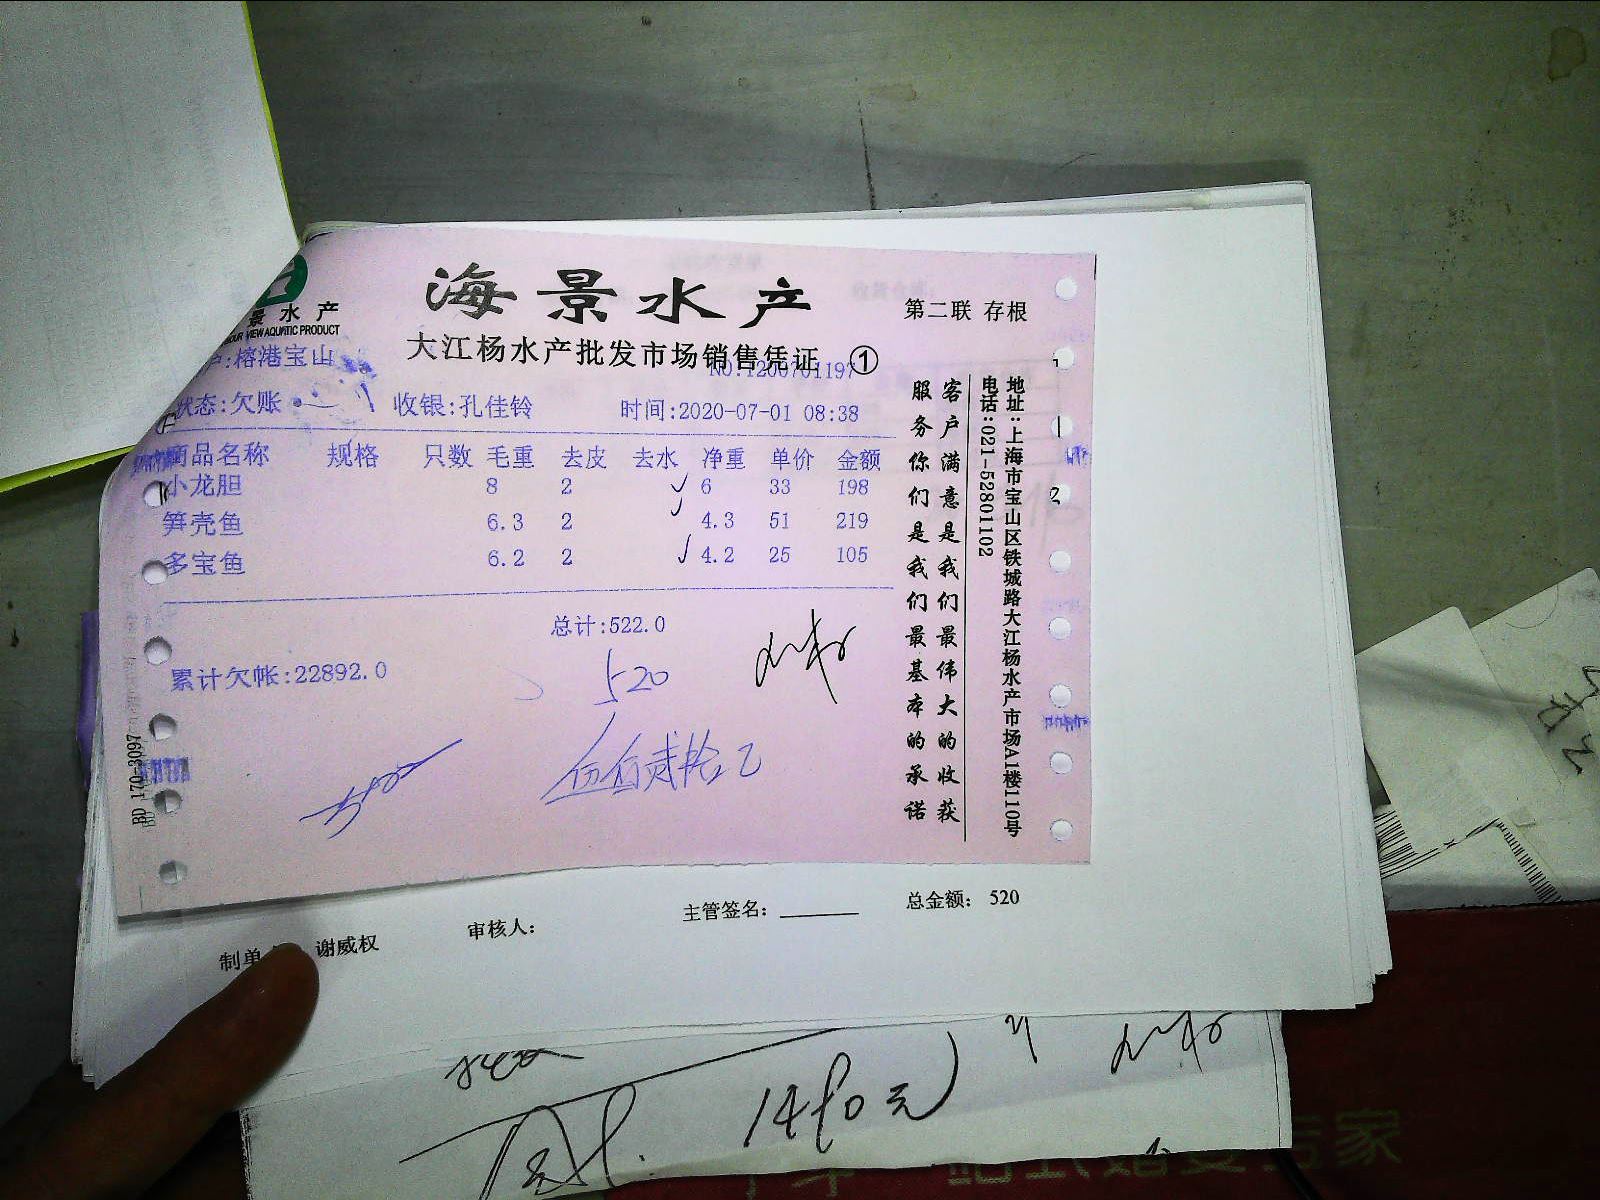 海景水产
第二联 存根
景水产
VIEW AQUATIC PRODUCT
大江杨水产批发市场销售凭证 ①
NO:1200701197
:榕港宝山
状态:欠账
收银:孔佳铃
时间:2020-07-01 08:38
商品名称 规格 只数 毛重 去皮 去水 净重 单价 金额
小龙胆 8 2 6 33 198
笋壳鱼 6.3 2 4.3 51 219
多宝鱼 6.2 2 4.2 25 105
总计:522.0
累计欠帐:22892.0
520
客户满意是我们最伟大的收获
服务你们是我们最基本的承诺
地址:上海市宝山区铁城路大江杨水产市场A1楼110号
电话:021-52801102
BD 170-3097
制单 谢威权
审核人:
主管签名:
总金额: 520